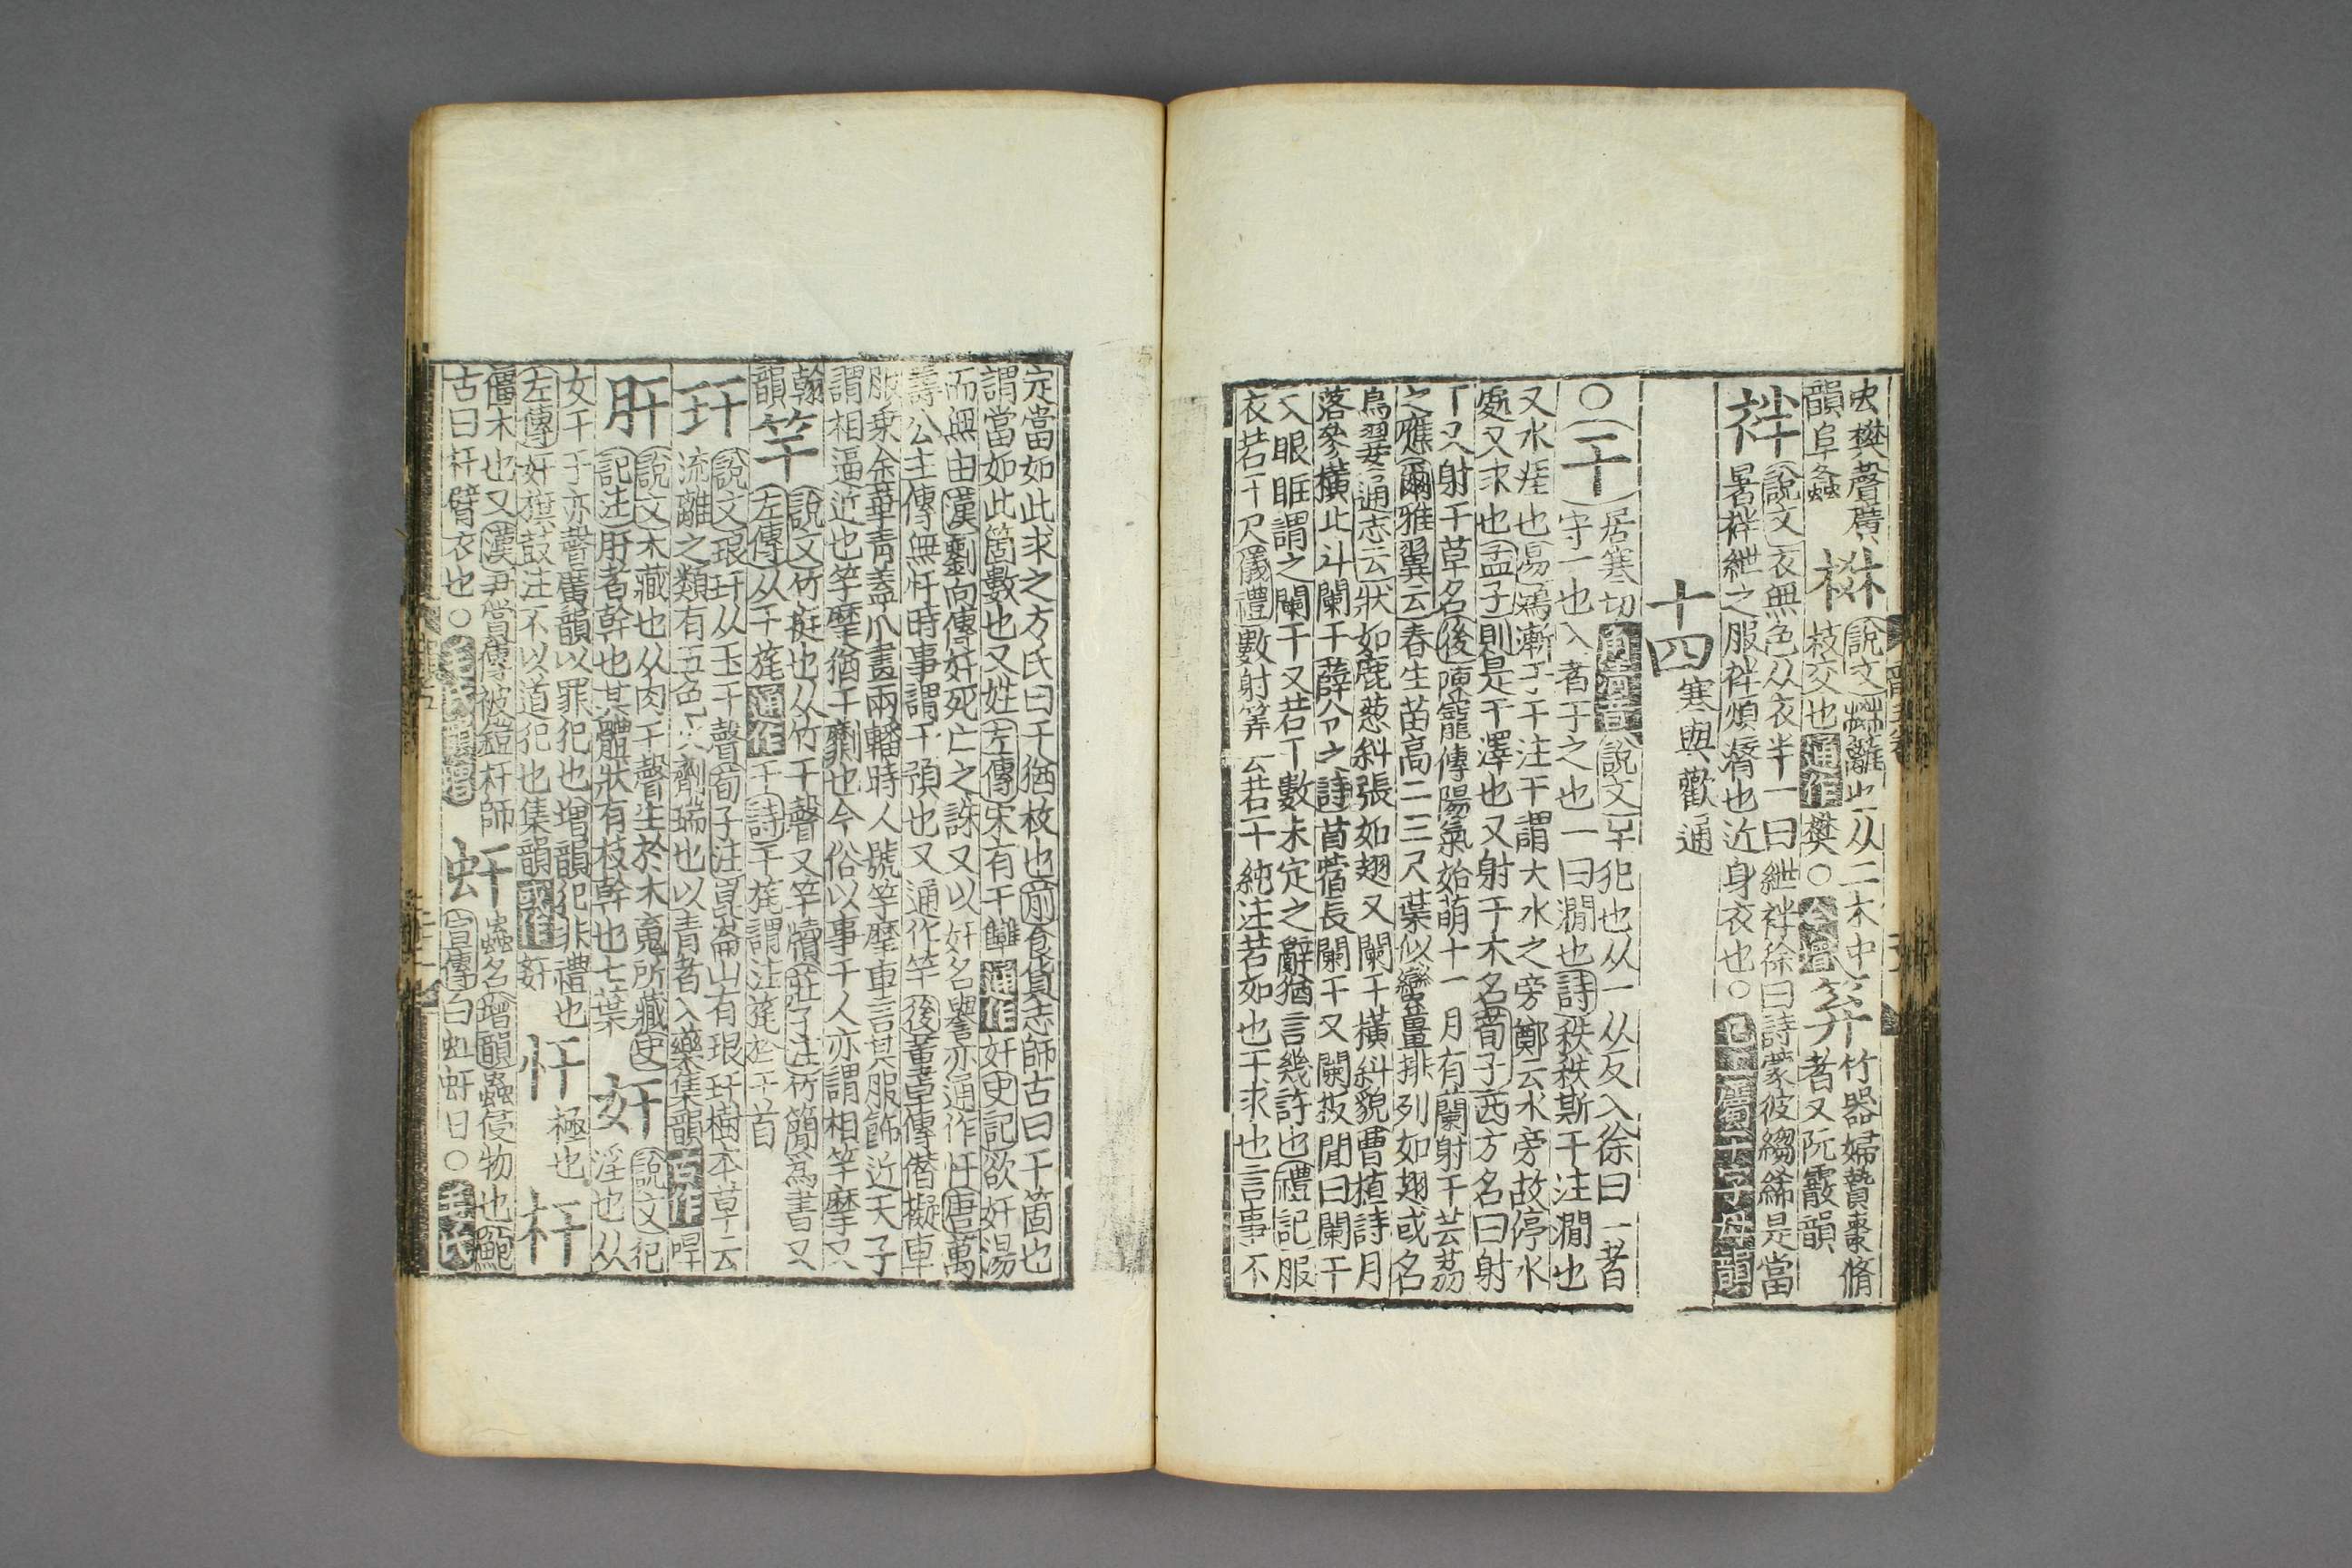 韻阜螽
棥
說文藩也从二木中
枝交也通作樊○
笲
竹器婦贄棗脩
者又阮霰韻
袢
說文衣無色从衣半一曰紲袢徐曰詩蒙彼縐絺是當
暑袢紲之服袢煩溽也近身衣也○
十四
寒與歡通
○干
居寒切角清音說文干犯也从一从反入徐曰一者
守一也入者干之也一曰澗也詩秩秩斯干注澗也
又水涯也易鴻漸于干注干謂大水之旁鄭云水旁故停水
處又求也孟子則是干澤也又射干木名荀子西方名曰射
干又射干草名後陳寵傳陽氣始萌十一月有蘭射干芸荔
之應爾雅翼云春生苗高二三尺葉似蠻薑排列如翅或名
烏翣通志云狀如鹿葱斜張如翅又闌干橫斜貌曹植詩月
落參橫北斗闌干薛令之詩苜蓿長闌干又闌扳閒曰闌干
又眼眶謂之闌干又若干數未定之辭猶言幾許也禮記服
衣若干尺儀禮數射筭云若干純注若如也干求也言事不
定當如此求之方氏曰干猶枚也前食貨志師古曰干箇也
謂當如此箇數也又姓左傳宋有干犨通作奸史記欲奸湯
而無由漢劉向傳奸死亡之誅又以奸名譽亦通作忓唐萬
壽公主傳無忓時事謂干預也又通作竿後董卓傳僭擬車
服乘金華青蓋爪畫兩轓時人號竿摩車言其服飾近天子
謂相逼近也竿摩猶干劘也今俗以事干人亦謂相竿摩又
翰韻
竿
說文竹梃也从竹干聲又竿牘莊子注竹簡爲書又
左傳从干旄通作干詩干旄謂注旄於干首
玕
說文琅玕从玉干聲荀子注崑崙山有琅玕樹本草云
流離之類有五色以剤瑞也以青者入藥集韻古作㻔
肝
說文木藏也从肉干聲生於木䰟所藏史
記注肝者幹也其體狀有枝幹也七葉
奸
說文犯
淫也从
女干干亦聲廣韻以罪犯也增韻犯非禮也
左傳奸旗鼓注不以道犯也集韻或作姧
忓
極也
杆
僵木也又漢尹賞傳被鎧杆師
古曰杆臂衣也○
虷
蟲名增韻蟲侵物也鮑
宣傳白虹虷日○毛氏